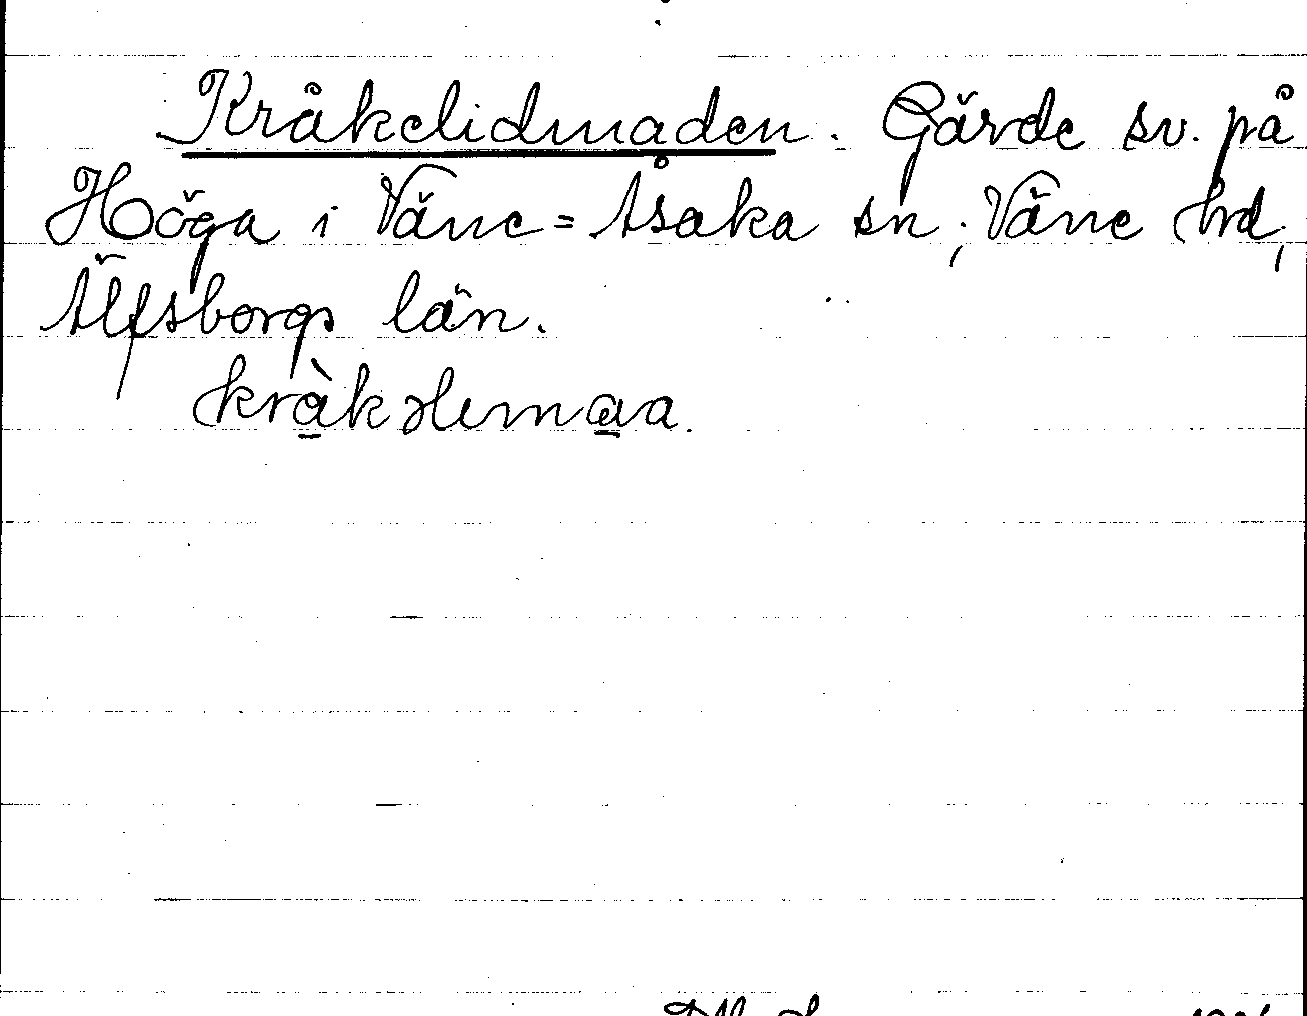 Kråkelidmaden. Gärde sv. på
Höga i Väne=Åsaka sn, Väne hd,
Älfsborgs län.
kràkəlemaa.